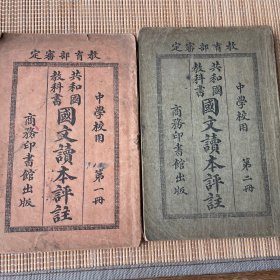 教育部審定
中學校用
共和國教科書
國文讀本評註
第一冊
商務印書館出版
教育部審定
中學校用
共和國教科書
國文讀本評註
第二冊
商務印書館出版